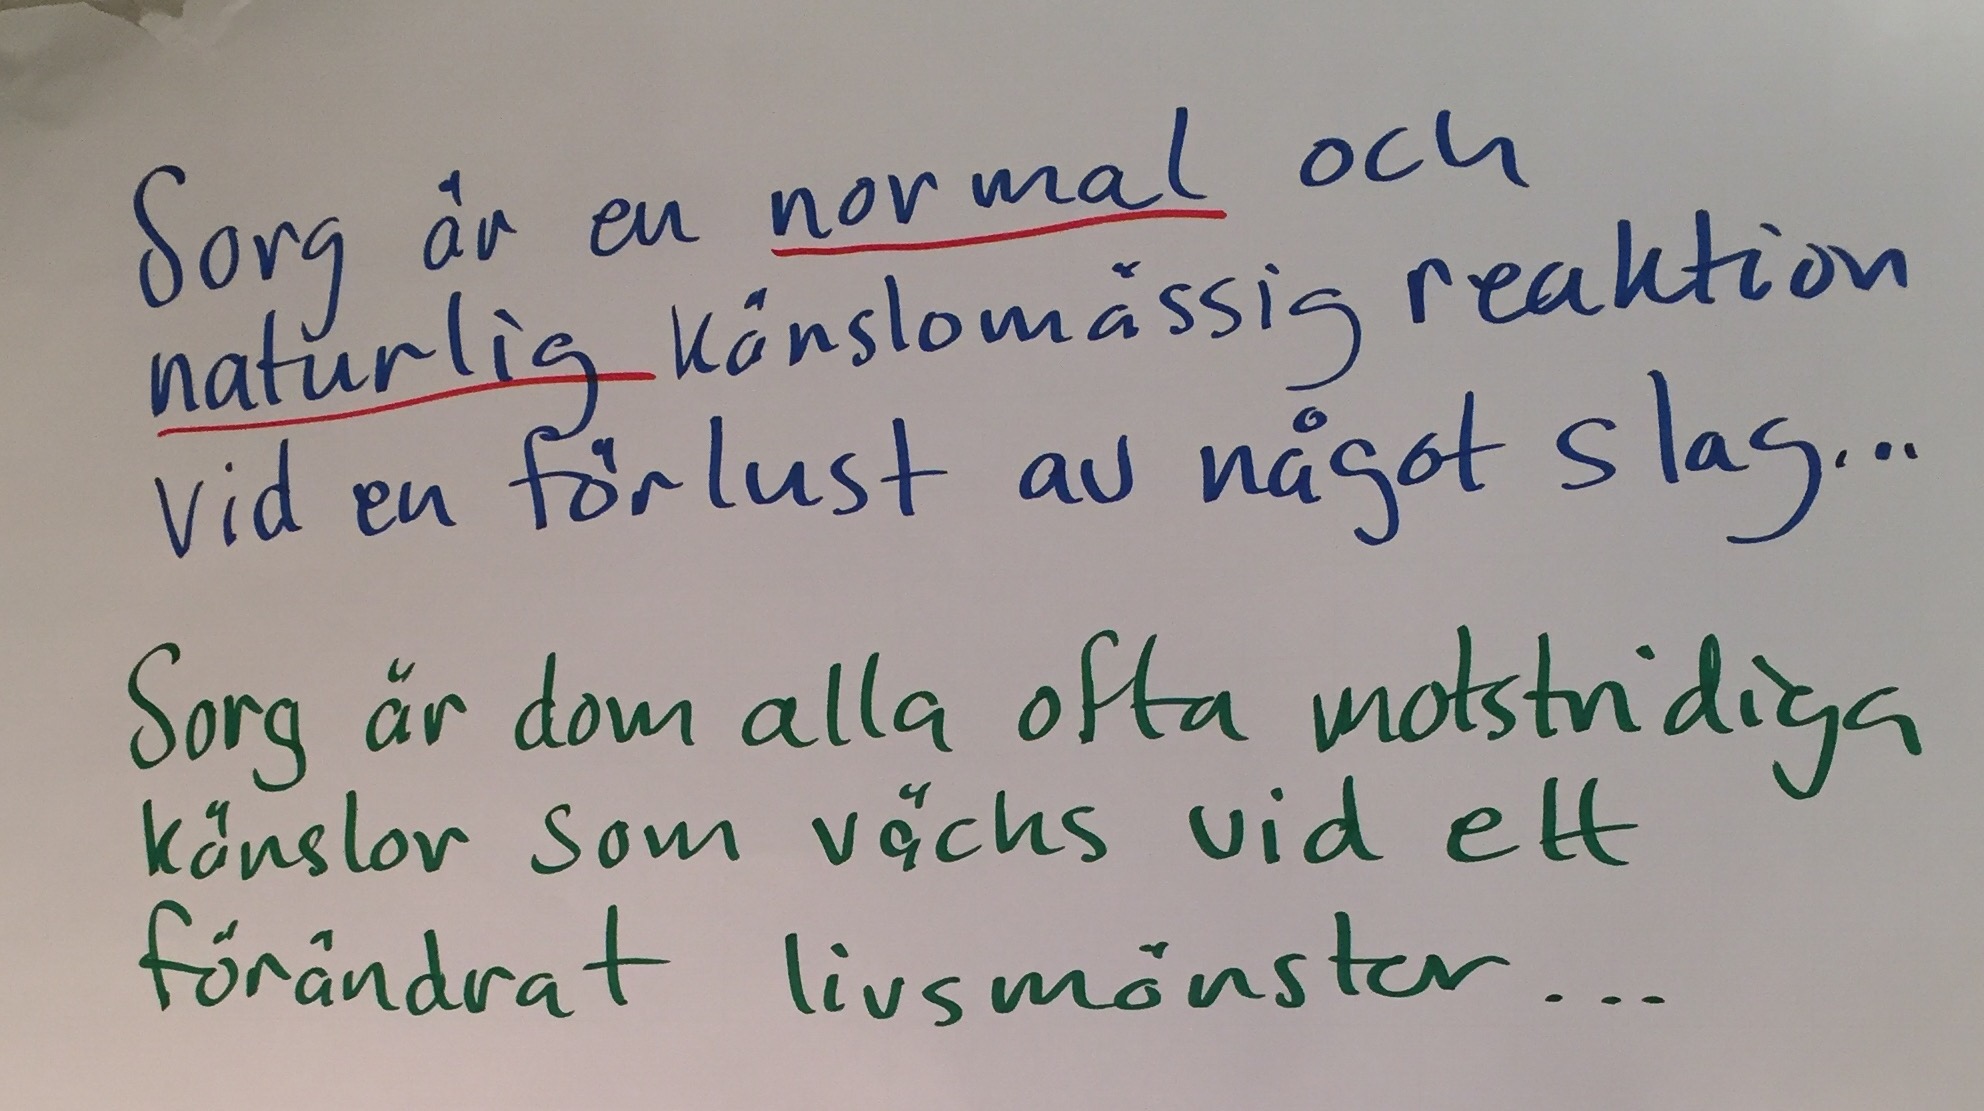 Sorg är en normal och
naturlig känslomässig reaktion
vid en förlust av något slag...
Sorg är dom alla ofta motstridiga
känslor som väcks vid ett
förändrat livsmönster...